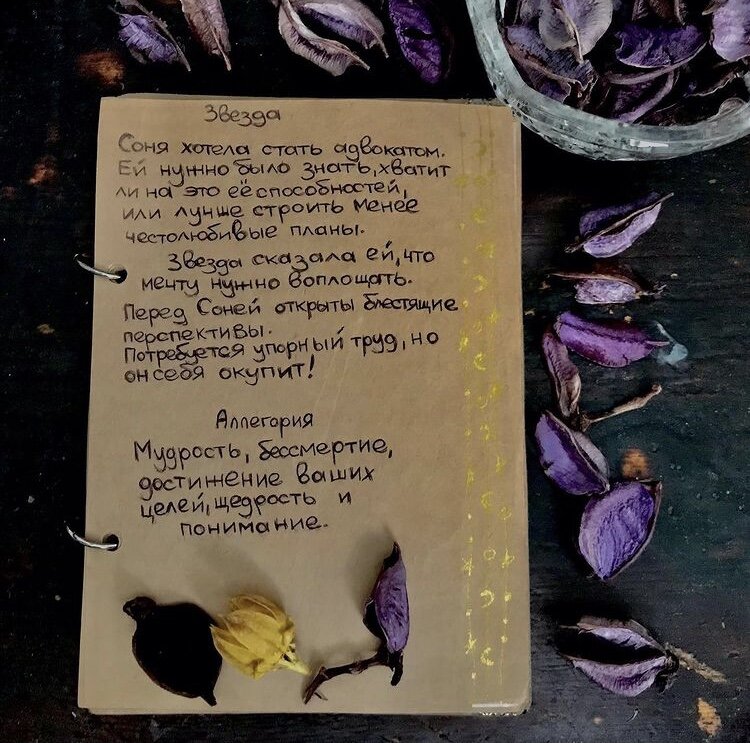 Звезда
Соня хотела стать адвокатом.
Ей нужно было знать, хватит
ли на это её способностей,
или лучше строить менее
честолюбивые планы.
Звезда сказала ей, что
мечту нужно воплощать.
Перед Соней открыты блестящие
перспективы.
Потребуется упорный труд, но
он себя окупит!
Аллегория
Мудрость, бессмертие,
достижение ваших
целей, щедрость и
понимание.